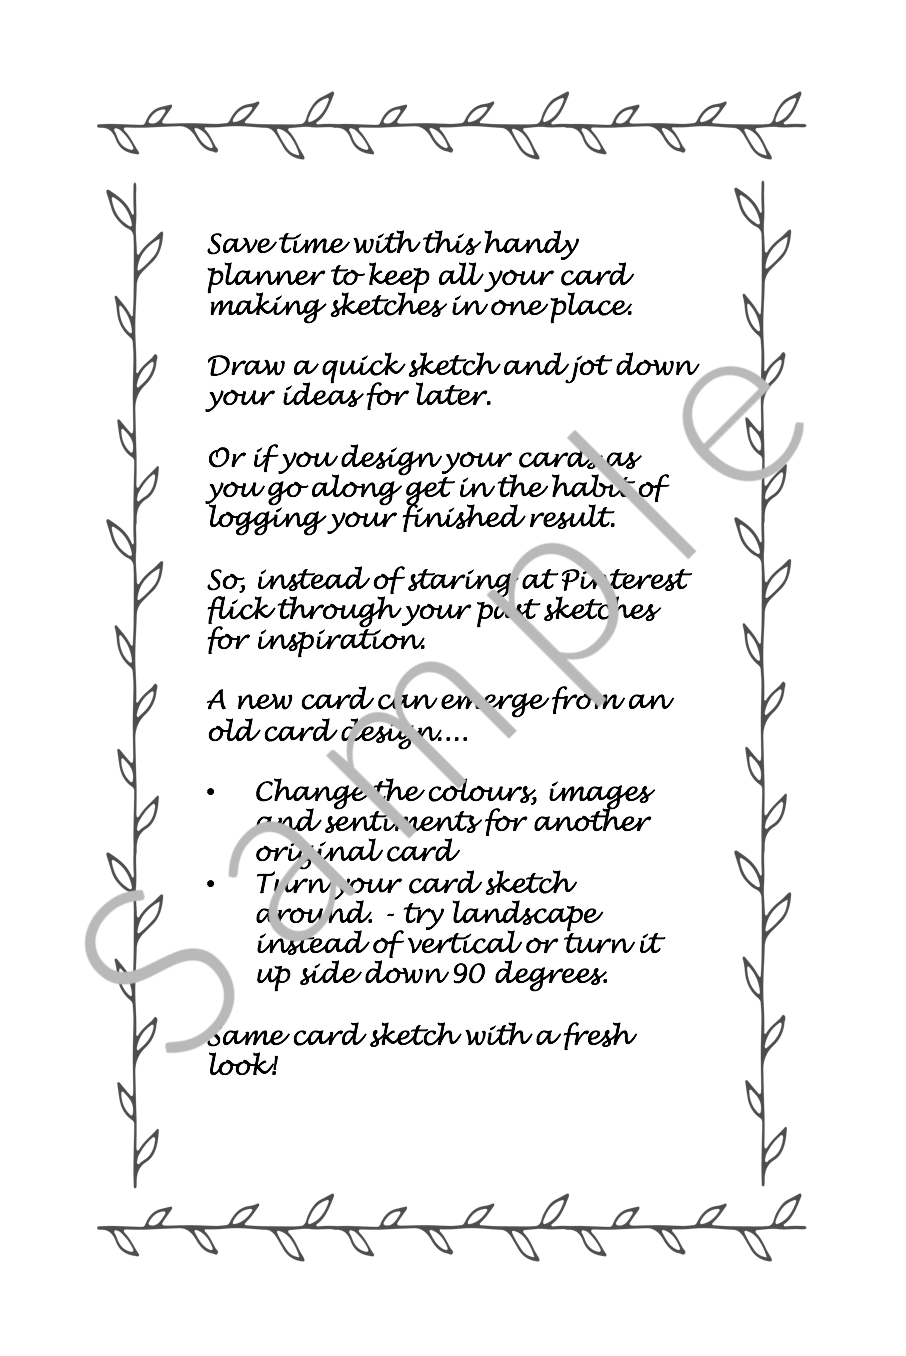 Save time with this handy
planner to keep all your card
making sketches in one place.
Draw a quick sketch and jot down
your ideas for later.
Or if you design your cards as
you go along get in the habit of
logging your finished result.
So, instead of staring at Pinterest
flick through your past sketches
for inspiration.
A new card can emerge from an
old card design....
• Change the colours, images
and sentiments for another
original card
• Turn your card sketch
around. - try landscape
instead of vertical or turn it
up side down 90 degrees.
Same card sketch with a fresh
look!
Sample